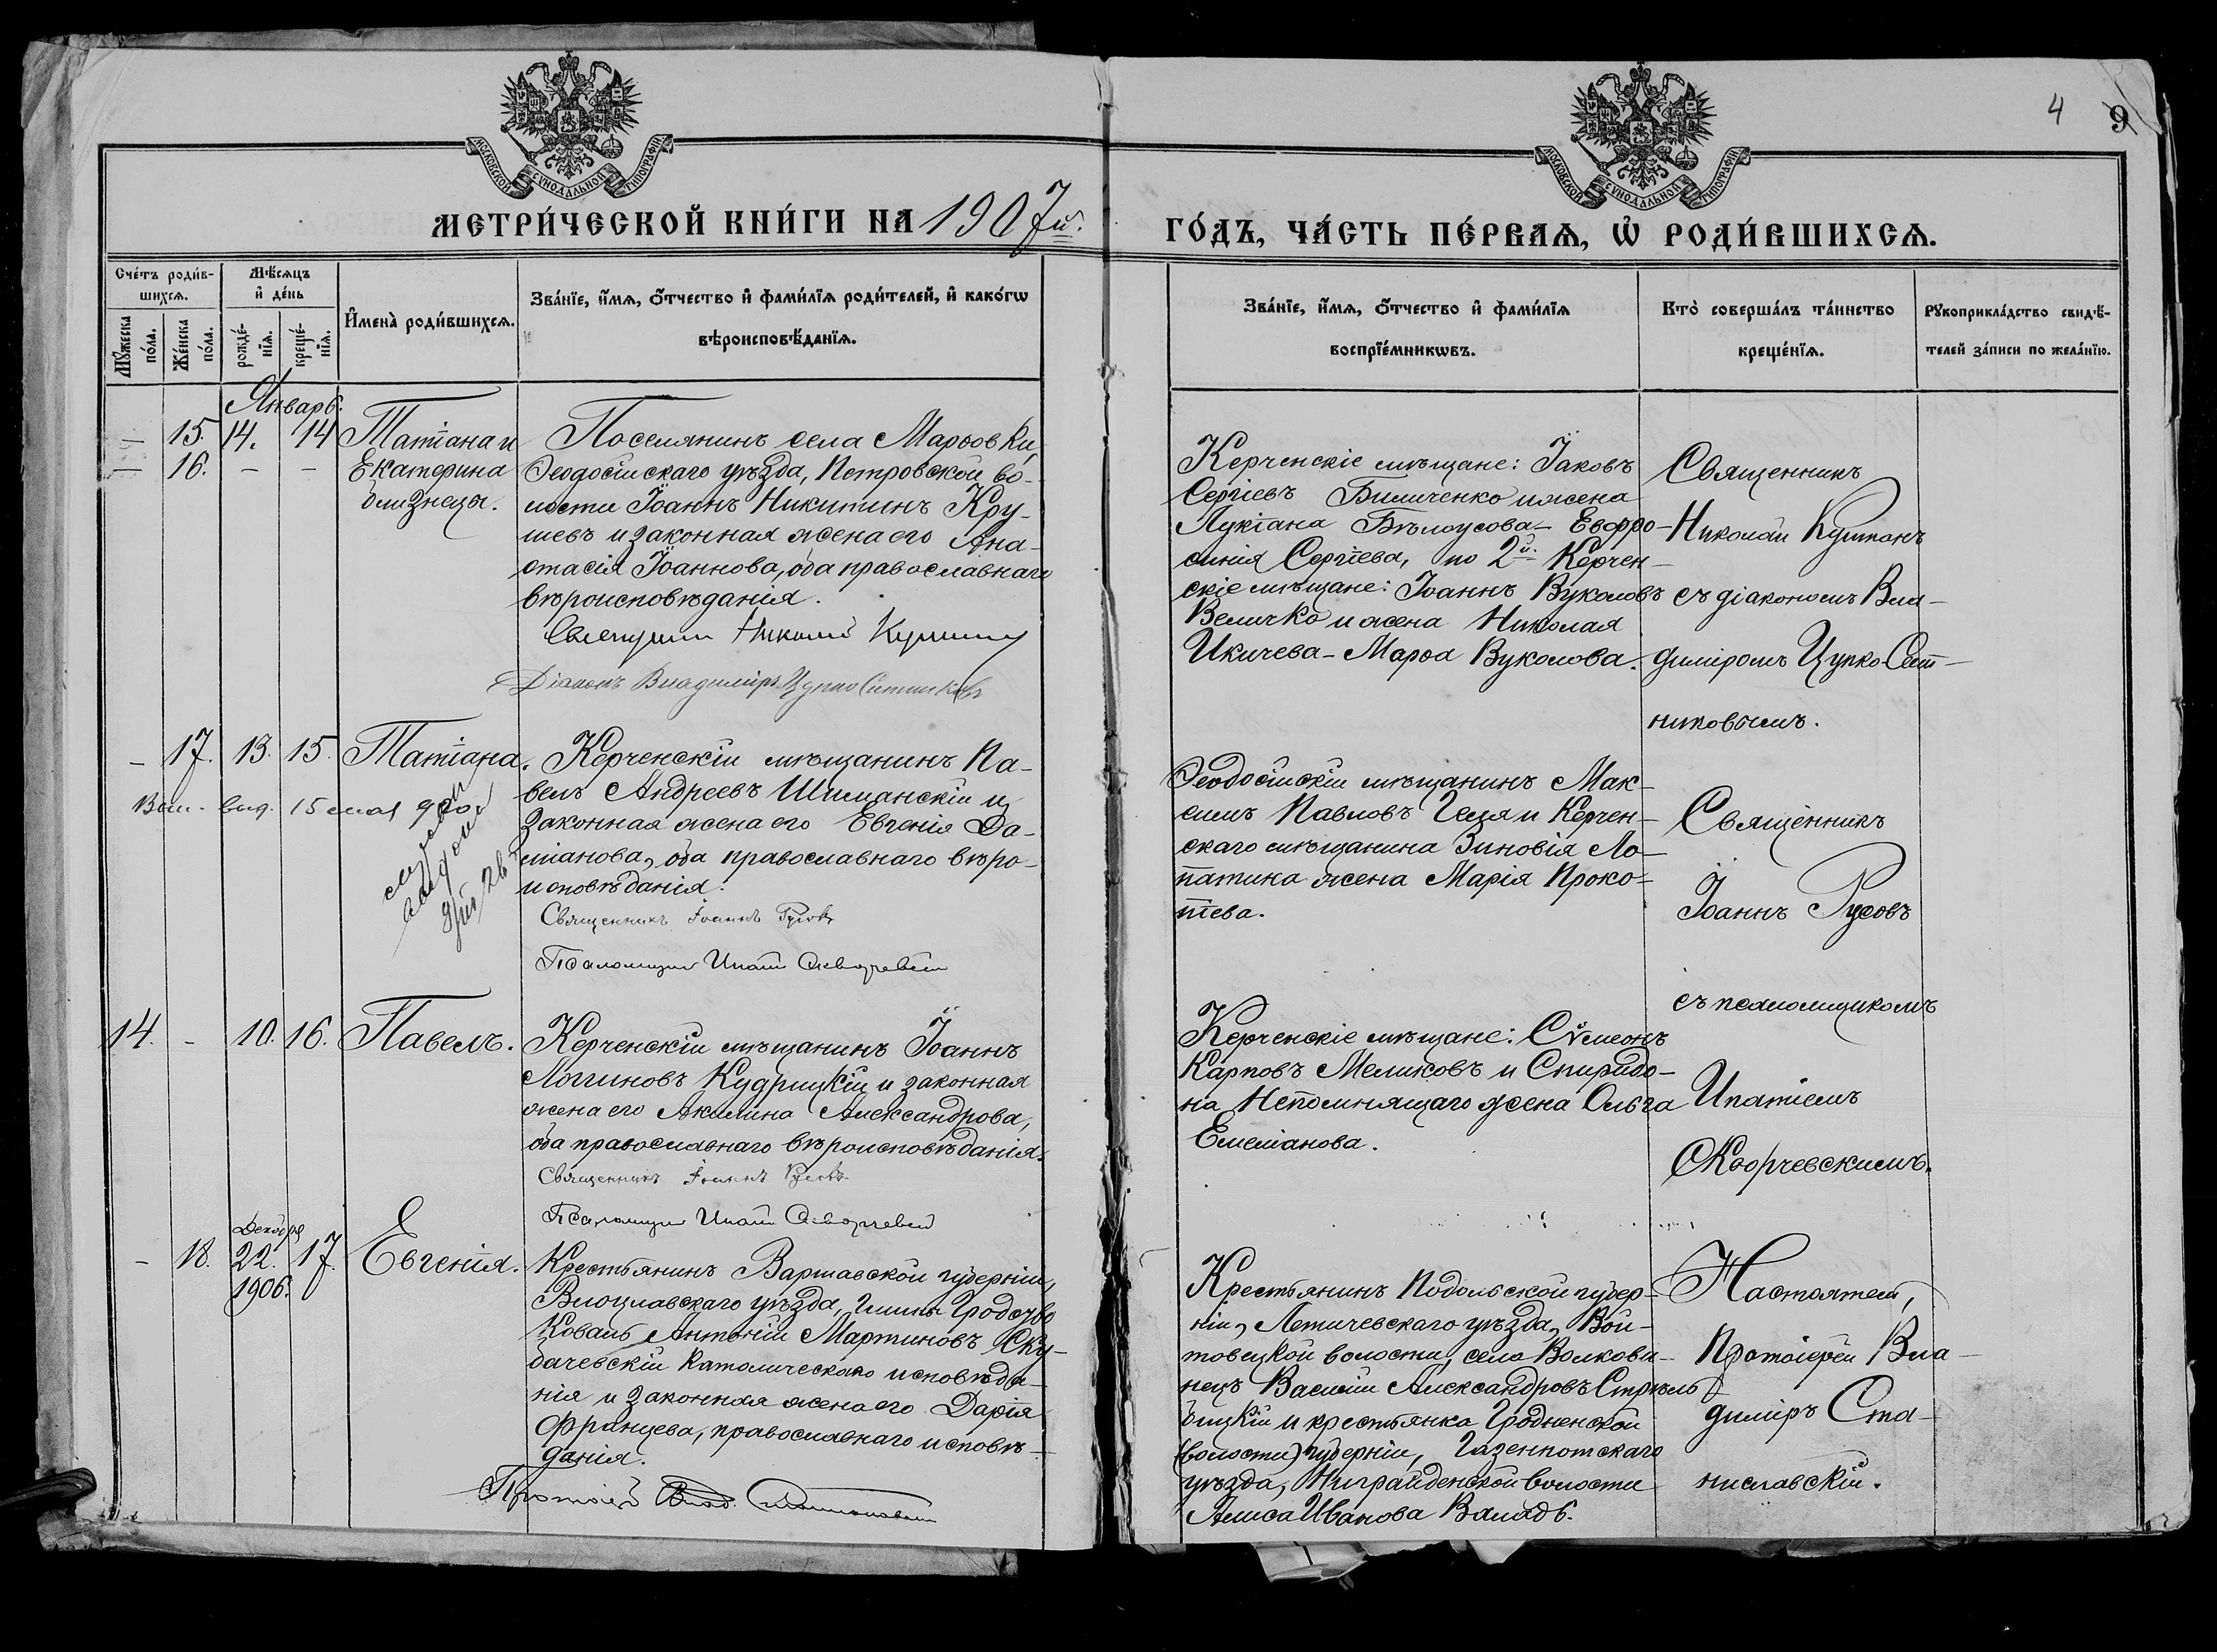 4 9
МОСКОВСКОЙ СУНОДАЛЬНОЙ ТИПОГРАФІИ
МОСКОВСКОЙ СУНОДАЛЬНОЙ ТИПОГРАФІИ
МЕТРИ́ЧЕСКОЙ КНИ́ГИ НА 1907й.
ГО́ДЪ, ЧА́СТЬ ПЕ́РВАѦ, Ѡ҆ РОДИ́ВШИХСѦ.
Сче́тъ роди́в-
шихсѧ.
Мѣ́сѧцъ
и҆ де́нь
Мꙋ́жеска
по́ла.
Же́нска
по́ла.
рожде́-
нїѧ.
креще́-
нїѧ.
И҆мена̀ роди́вшихсѧ.
Зва́нїе, и҆́мѧ, ѻ҆́тчество и҆ фами́лїѧ роди́телей, и҆ како́гѡ
вѣроисповѣ́данїѧ.
Зва́нїе, и҆́мѧ, ѻ҆́тчество и҆ фами́лїѧ
воспрїе́мникѡвъ.
Кто̀ соверша́лъ та́инство
креще́нїѧ.
Рꙋкоприкла́дство свидѣ́-
телей за́писи по жела́нїю.
Январь.
15. 14. 14 Татіана и
16. – – Екатерина
близнецы.
Поселянинъ села Марѳовки,
Ѳеодосійскаго уѣзда, Петровской во-
лости Іоаннъ Никитинъ Кру-
шевъ и законная жена его Ана-
стасія Іоаннова, оба православнаго
вѣроисповѣданія.
Священникъ Николай
Діаконъ Владиміръ Цупко Ситниковъ
Керченскіе мѣщане: Іаковъ
Сергіевъ Биличенко и жена
Лукіана Бѣлоусова – Евфро-
синія Сергіева, по 2й. Керчен-
скіе мѣщане: Іоаннъ Вуколовъ
Величко и жена Николая
Икичева – Марѳа Вуколова.
Священникъ
Николай
съ діакономъ Вла-
диміромъ Цупко-Сит-
никовымъ.
– 17. 13. 15. Татіана.
Вып. выд. 15 мая 920
Керченскій мѣщанинъ Па-
велъ Андреевъ Шиманскій и
законная жена его Евгенія Да-
міанова, оба православнаго вѣро-
исповѣданія.
Священникъ Іоаннъ Русовъ
Псаломщикъ Ипатій Скворчевскій
Ѳеодосійскій мѣщанинъ Мак-
симъ Павловъ и Керчен-
скаго мѣщанина Зиновія Ло-
патина жена Марія Проко-
піева.
Священникъ
Іоаннъ Русовъ
съ псаломщикомъ
Ипатіемъ
Скворчевскимъ.
14. – 10. 16. Павелъ.
Керченскій мѣщанинъ Іоаннъ
Логгиновъ Кудрицкій и законная
жена его Акилина Александрова,
оба православнаго вѣроисповѣданія.
Священникъ Іоаннъ Русовъ
Псаломщикъ Ипатій Скворчевскій
Керченскіе мѣщане: Сѵмеонъ
Карповъ Меликовъ и Спиридо-
на Непомнящаго жена Ольга
Емеліанова.
Декабря
– 18. 22. 17. Евгенія.
1906.
Крестьянинъ Варшавской губерніи,
Влоцлавскаго уѣзда, Гмины
Коваль Антоній Мартиновъ Ску-
бачевскій католическаго исповѣда-
нія и законная жена его Дарія
Францева, православнаго исповѣ-
данія.
Протоіерей Влад. Станиславскій
Крестьянинъ Подольской губер-
ніи, Летичевскаго уѣзда, Вой-
товецкой волости, села Волкови-
нецъ Василій Александровъ Стрѣль-
бицкій и крестьянка Гродненской
(волости) губерніи, Газенпотскаго
уѣзда, волости
Алиса Иванова
Настоятель,
Протоіерей Вла-
диміръ Ста-
ниславскій.